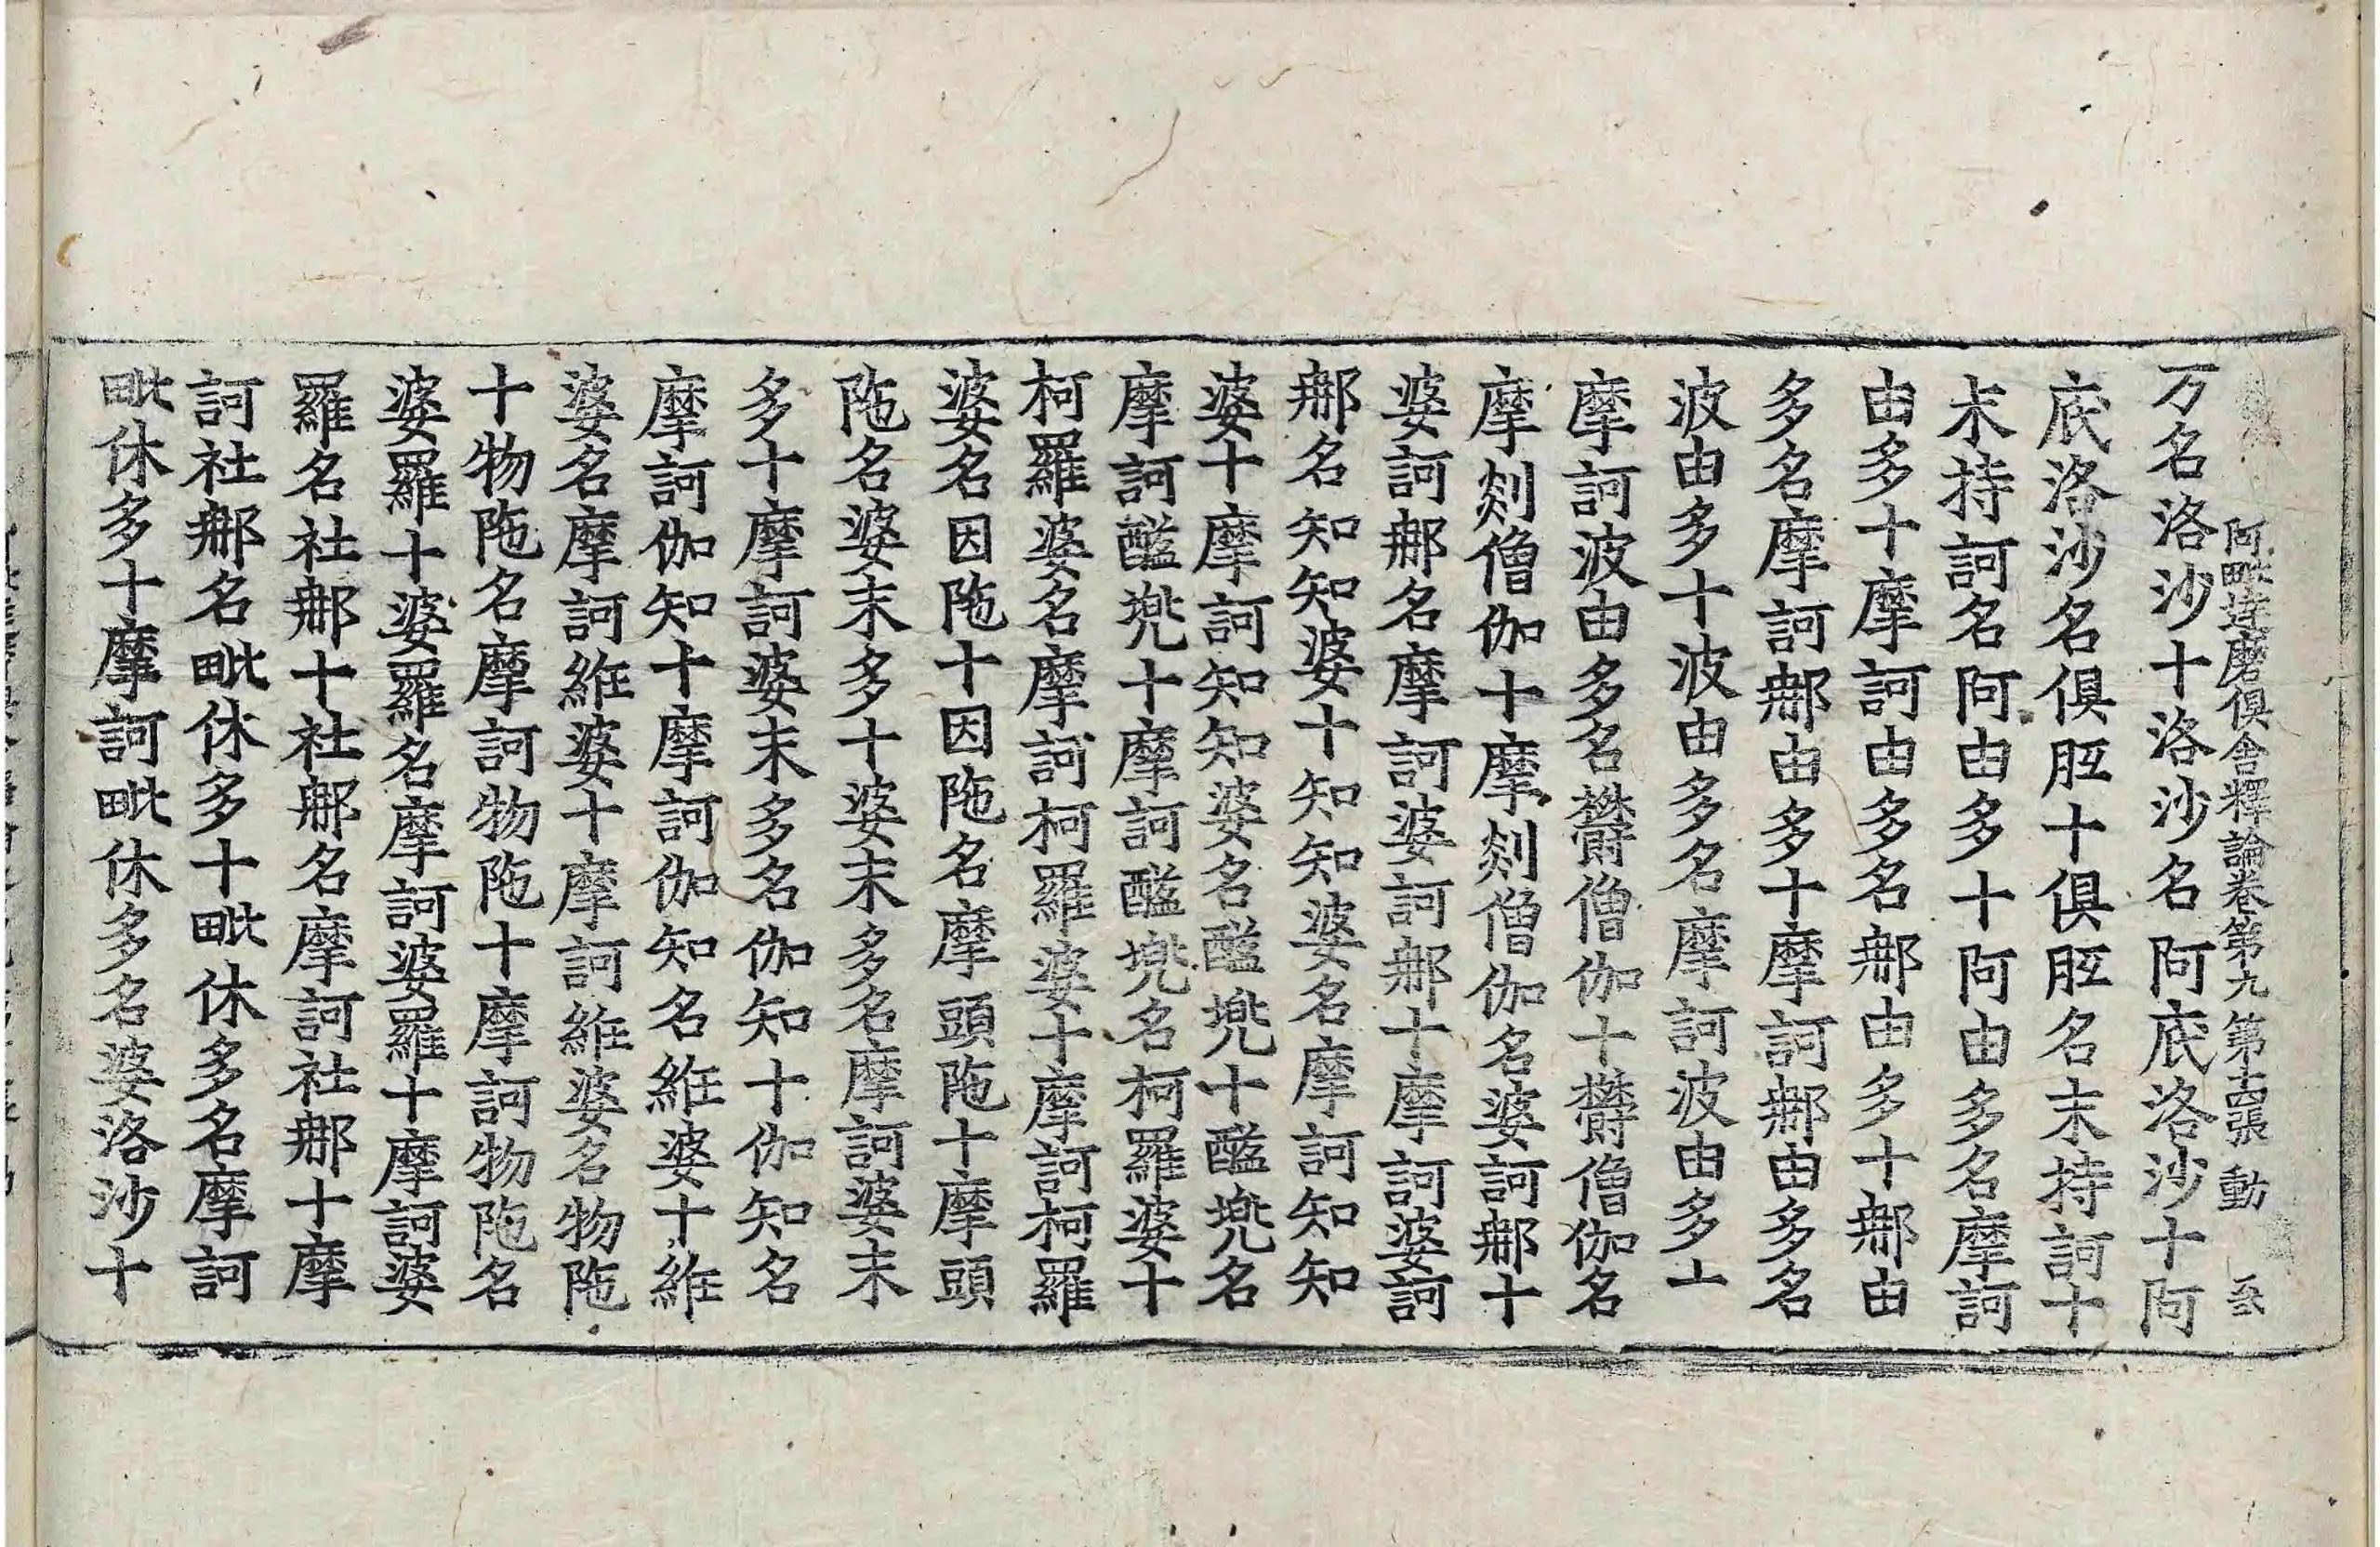 阿毗达磨俱舍釋論卷第九 第十六張 動
万名洛沙十洛沙名阿底洛沙十阿
底洛沙名俱胝十俱胝名末持訶十
末持訶名阿由多十阿由多名摩訶
由多十摩訶由多名鄅由多十鄅由
多名摩訶鄅由多十摩訶鄅由多名
波由多十波由多名摩訶波由多十
摩訶波由多名欝僧伽十欝僧伽名
摩剡僧伽十摩剡僧伽名婆訶鄅十
婆訶鄅名摩訶婆訶鄅十摩訶婆訶
鄅名知知婆十知知婆名摩訶知知
婆十摩訶知知婆名醯兠十醯兠名
摩訶醯兠十摩訶醯兠名柯羅婆十
柯羅婆名摩訶柯羅婆十摩訶柯羅
婆名因陁十因陁名摩頭陁十摩頭
陁名婆末多十婆末多名摩訶婆末
多十摩訶婆末多名伽知十伽知名
摩訶伽知十摩訶伽知名維婆十維
婆名摩訶維婆十摩訶維婆名物陁
十物陁名摩訶物陁十摩訶物陁名
婆羅十婆羅名摩訶婆羅十摩訶婆
羅名社鄅十社鄅名摩訶社鄅十摩
訶社鄅名毗休多十毗休多名摩訶
毗休多十摩訶毗休多名婆洛沙十